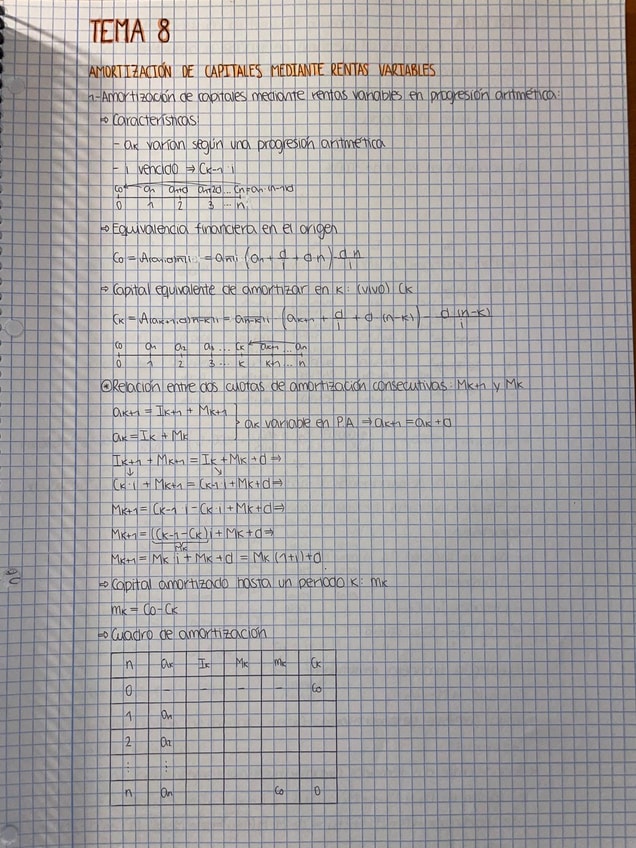 TEMA 8
AMORTIZACIÓN DE CAPITALES MEDIANTE RENTAS VARIABLES
1-Amortización de capitales mediante rentas variables en progresión aritmética:
⇒ Características:
- ak varían según una progresión aritmética
- i vencido ⇒ Ck-1 · i
C0 a1 a1+d a1+2d ... Cn=a1+(n-1)d
0 1 2 3 ... n
⇒ Equivalencia financiera en el origen
C0 = A(a1,d)n¬i = an¬i (a1 + d/i + dn) - dn/i
⇒ Capital equivalente de amortizar en k: (vivo) Ck
Ck = A(ak+1,d)n-k¬i = an-k¬i (ak+1 + d/i + d(n-k)) - d(n-k)/i
C0 a1 a2 a3 ... Ck ak+1 ... an
0 1 2 3 ... k k+1 ... n
Relación entre dos cuotas de amortización consecutivas: Mk+1 y Mk
ak+1 = Ik+1 + Mk+1
ak = Ik + Mk
} ak variable en PA ⇒ ak+1 = ak + d
Ik+1 + Mk+1 = Ik + Mk + d ⇒
Ck · i + Mk+1 = Ck-1 · i + Mk + d ⇒
Mk+1 = Ck-1 · i - Ck · i + Mk + d ⇒
Mk+1 = (Ck-1 - Ck) i + Mk + d ⇒
Mk
Mk+1 = Mk · i + Mk + d = Mk (1+i) + d
⇒ Capital amortizado hasta un periodo k: mk
mk = C0 - Ck
⇒ Cuadro de amortización
n ak Ik Mk mk Ck
0 - - - - C0
1 a1
2 a2
⋮ ⋮
n an C0 0